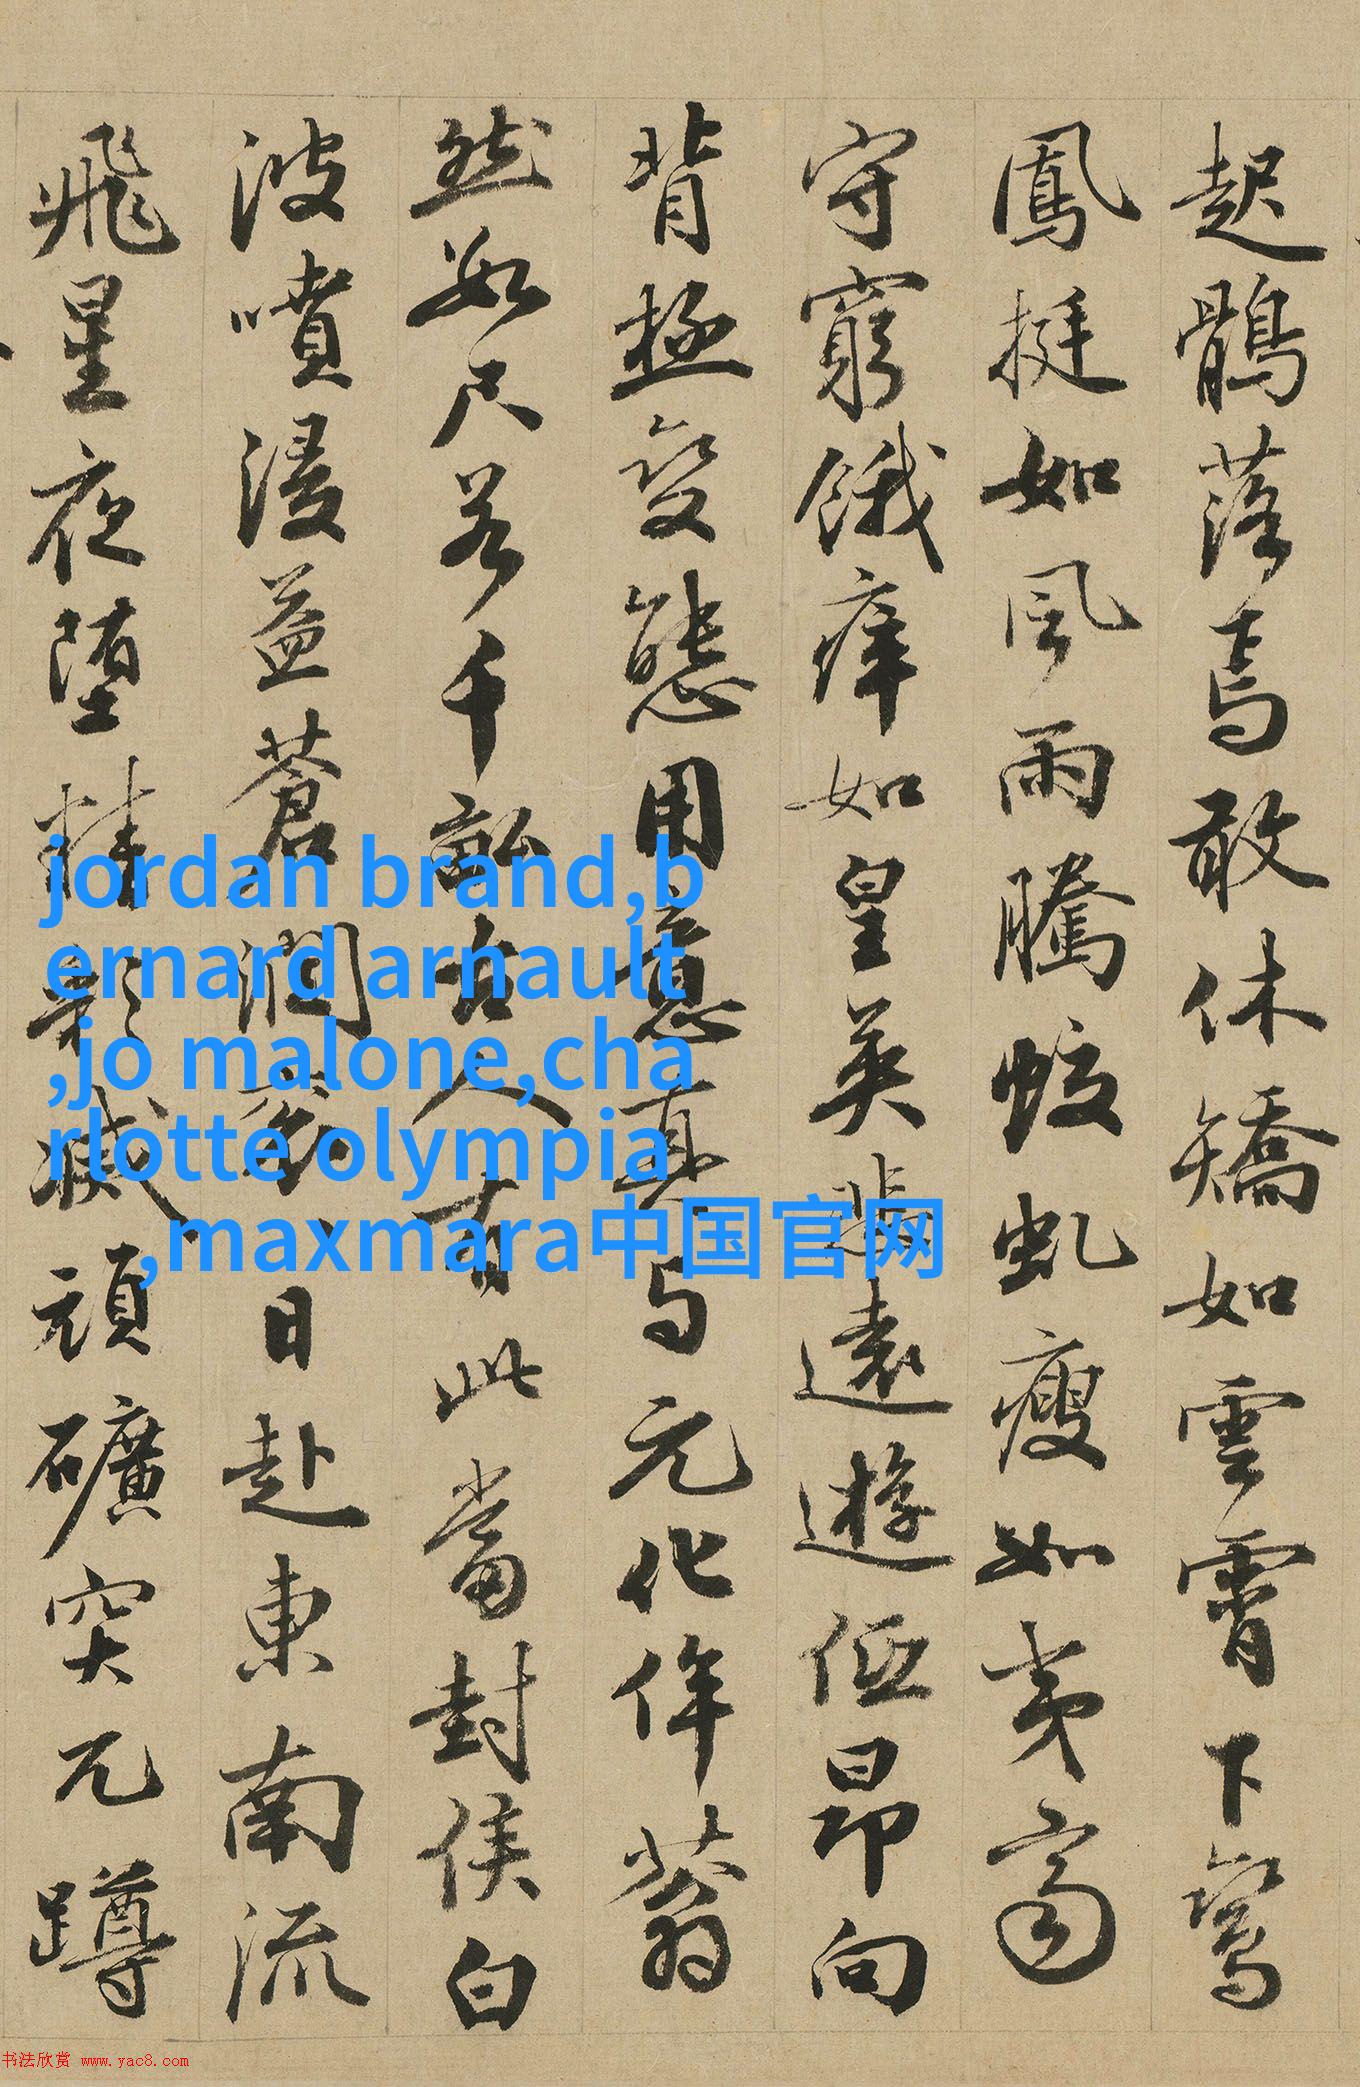 起鶻落焉敢休矯如雲霄下鸞
鳳挺如風雨騰蛟虬瘦如夷齊
守窮餓痒如皇英悲遠遊低昂向
背極變態用意真与元化侔蓊
然數尺若千畝古人有此當封侯白
波噴浸益蒼潤日赴東南流
飛星夜堕精影減頑礦突兀蹲
jordan brand,b
ernard arnault
,jo malone,cha
rlotte olympia
,maxmara中国官网
书法欣赏 www.yac8.com